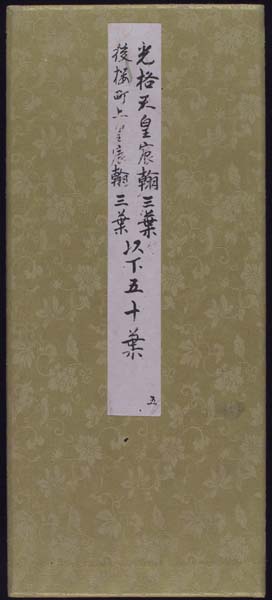 光格天皇宸翰三葉以下五十葉
後桜町上皇宸翰三葉
五